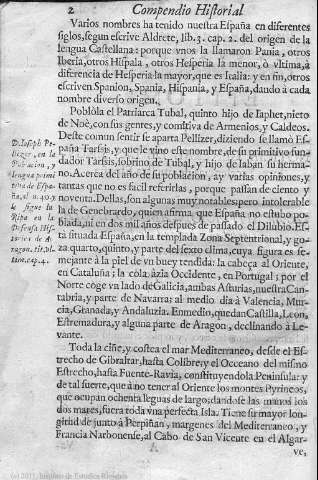 2 Compendio Historial
Varios nombres ha tenido nuestra España en diferentes
siglos, segun escrive Aldrete, lib. 3. cap. 2. del origen de la
lengua Castellana: porque vnos la llamaron Pania, otros
Iberia, otros Hispala, otros Hesperia la menor, ò vltima, à
diferencia de Hesperia la mayor, que es Italia: y en fin, otros
escriven Spanion, Spania, Hispania, y España, dando à cada
nombre diverso origen.
Poblòla el Patriarca Tubal, quinto hijo de Iaphet, nieto
de Noè, con sus gentes, y comitiva de Armenios, y Caldeos.
Deste comun sentir se aparta Pellizer, diziendo se llamò Es-
paña Tarsis, y que le vino este nombre, de su primitivo fun-
dador Tarsis, sobrino de Tubal, y hijo de Iaban su herma-
no. Acerca del año de su poblacion, ay varias opiniones, y
tantas que no es facil referirlas, porque passan de ciento y
noventa. Dellas, son algunas muy notables, pero intolerable
la de Genebrardo, quien afirma que España no estubo po-
blada, hasta dos mil años despues de passado el Dilubio. Es-
ta situada España, en la templada Zona Septentrional, y go-
za quarto, quinto, y parte del sexto clima, cuya figura es se-
mejante à la piel de vn buey tendida: la cabeça al Oriente,
en Cataluña; la cola àzia Occidente, en Portugal; por el
Norte coge vn lado de Galicia, ambas Asturias, nuestra Can-
tabria, y parte de Navarra: al medio dia à Valencia, Mur-
cia, Granada, y Andaluzia. En medio, quedan Castilla, Leon,
Estremadura, y alguna parte de Aragon, declinando à Le-
vante.
Toda la ciñe, y costea el mar Mediterraneo, desde el Es-
trecho de Gibraltar, hasta Colibre; y el Occeano del mismo
Estrecho, hasta Fuente-Ravia, constituyendola Peninsula: y
de tal fuerte, que à no tener al Oriente los montes Pyrineos,
que ocupan ochenta leguas de largo; dandose las manos los
dos mares, fuera toda vna perfecta Isla. Tiene su mayor lon-
gitud de junto à Perpiñan, margenes del Mediterraneo, y
Francia Narbonense, al Cabo de San Vicente en el Algar-
ve;
D. Joseph Pe-
llizer, en la
Poblacion, y
lengua primi
tiva de Espa-
ña,
le sigue la
Ripa en la
Defensa His-
torica de A-
ragon,
tom, cap. 4.
(c) 2011, Instituto de Estudios Riojanos